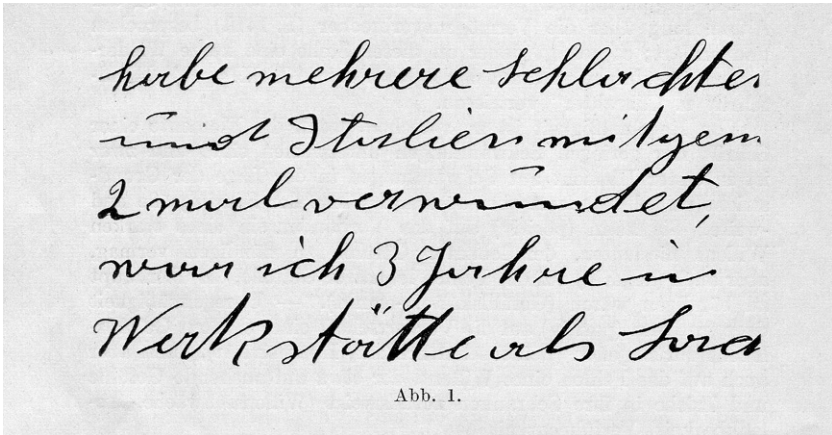 habe mehrere Schlachten
und Italien mitgem
2 mal verwundet,
war ich 3 Jahre in
Werkstätte als
Abb. 1.